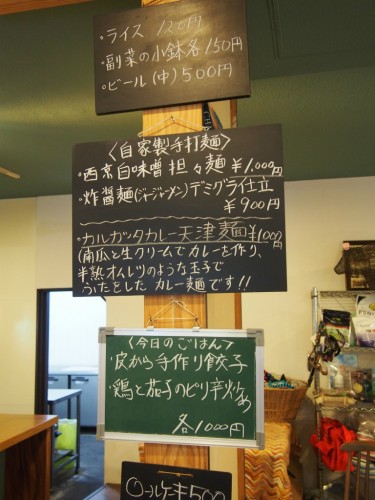 ・ライス 120円
・副菜の小鉢各150円
・ビール(中)500円
〈自家製手打麺〉
・西京白味噌担々麺¥1,000円
・炸醤麺(ジャージャーメン)デミグラ仕立
¥900円
・カルガッタカレー天津麺¥1000円
(南瓜と生クリームでカレーを作り、
半熟オムレツのような玉子で
ふたをした カレー麺です!!
〈今日のごはん〉
・皮から手作り餃子
・鶏と茄子のピリ辛炒め
各1000円
ロールケーキ500